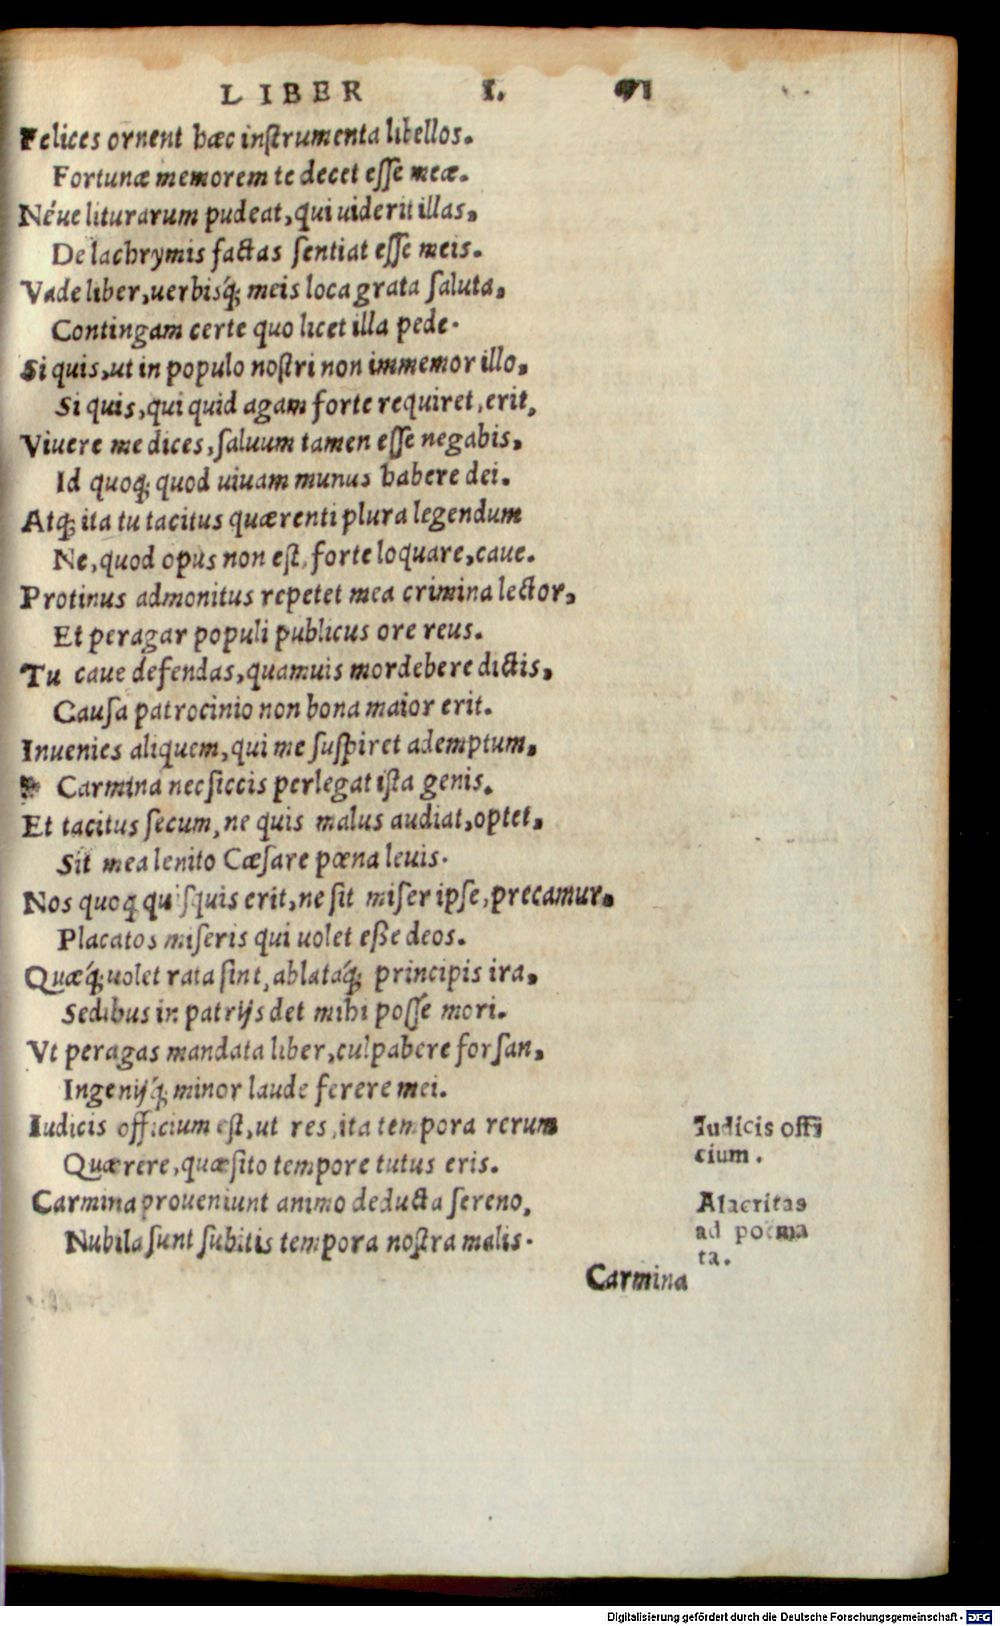 LIBER I. 91
Felices ornent hæc instrumenta libellos.
Fortunæ memorem te decet esse meæ.
Néue liturarum pudeat, qui uiderit illas,
De lachrymis factas sentiat esse meis.
Vade liber, uerbisq́; meis loca grata saluta,
Contingam certe quo licet illa pede.
Si quis, ut in populo nostri non immemor illo,
Si quis, qui quid agam forte requiret, erit,
Viuere me dices, saluum tamen esse negabis,
Id quoq; quod uiuam munus habere dei.
Atq; ita tu tacitus quærenti plura legendum
Ne, quod opus non est, forte loquare, caue.
Protinus admonitus repetet mea crimina lector,
Et peragar populi publicus ore reus.
Tu caue defendas, quamuis mordebere dictis,
Causa patrocinio non bona maior erit.
Inuenies aliquem, qui me suspiret ademptum,
Carmina nec siccis perlegat ista genis.
Et tacitus secum, ne quis malus audiat, optet,
Sit mea lenito Cæsare pœna leuis.
Nos quoq; quisquis erit, ne sit miser ipse, precamur,
Placatos miseris qui uolet eße deos.
Quæq́; uolet rata sint, ablataq́; principis ira,
Sedibus in patrijs det mihi posse mori.
Vt peragas mandata liber, culpabere forsan,
Ingenijq́; minor laude ferere mei.
Iudicis officium est, ut res, ita tempora rerum
Quærere, quæsito tempore tutus eris.
Carmina proueniunt animo deducta sereno,
Nubila sunt subitis tempora nostra malis.
Iudicis offi
cium.
Alacritas
ad poëma
ta.
Carmina
Digitalisierung gefördert durch die Deutsche Forschungsgemeinschaft - DFG